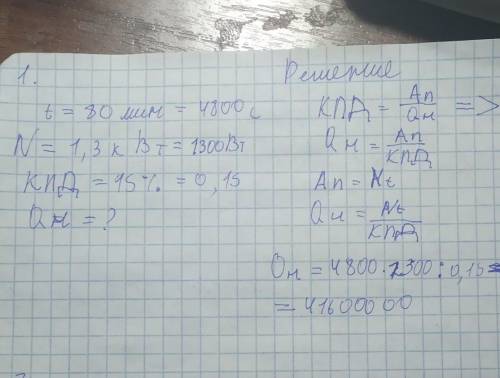 1.
t = 80 мин = 4800 с
N = 1,3 кВт = 1300Вт
КПД = 15% = 0,15
Qн = ?
Решение
КПД = Aп/Qн =>
Qн = Aп/КПД
Aп = Nt
Qн = Nt/КПД
Qн = 4800·1300:0,15=
= 41600000